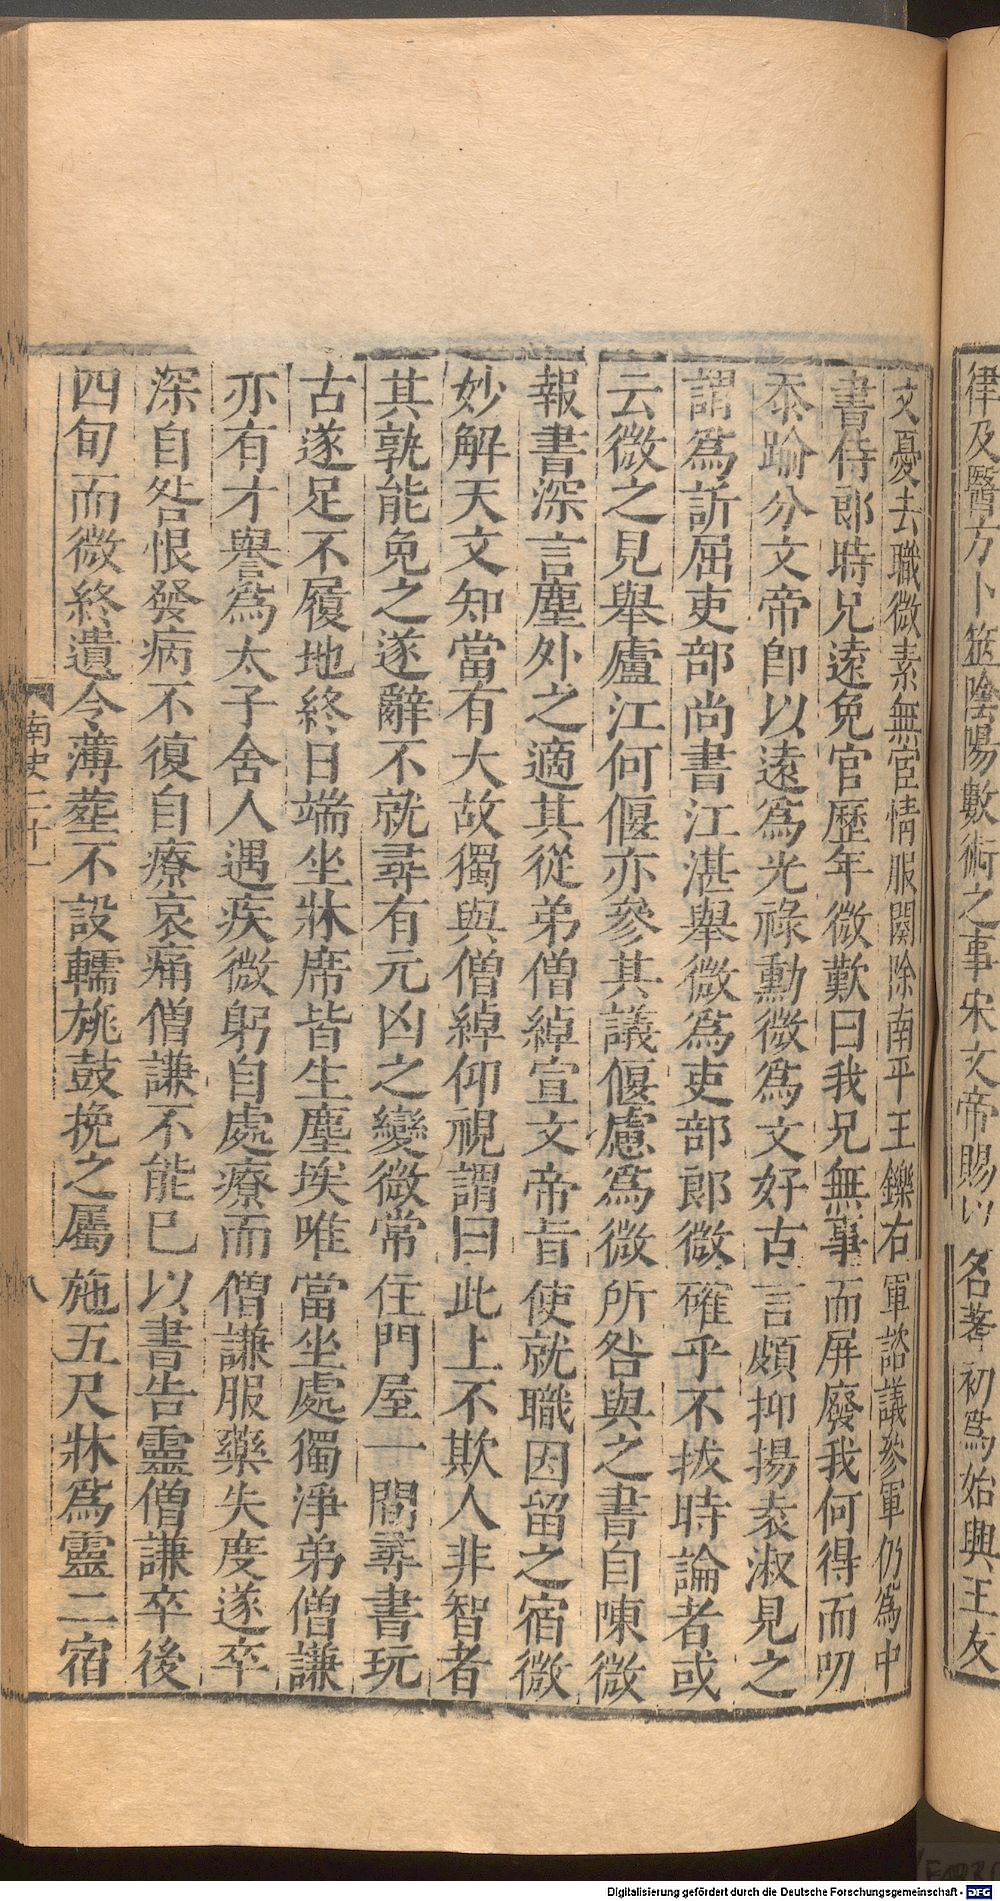 律及醫方卜筮陰陽數術之事宋文帝賜以名著初爲始興王友
父憂去職微素無宦情服闋除南平王鑠右軍諮議參軍仍爲中
書侍郎時兄遠免官歷年微歎曰我兄無事而屏廢我何得而叨
忝踰分文帝卽以遠爲光祿勳微爲文好古言頗抑揚袁淑見之
謂爲訴屈吏部尚書江湛舉微爲吏部郎微確乎不拔時論者或
云微之見舉廬江何偃亦參其議偃慮爲微所咎與之書自陳微
報書深言塵外之適其從弟僧綽宣文帝旨使就職因留之宿微
妙解天文知當有大故獨與僧綽仰視謂曰此上不欺人非智者
其孰能免之遂辭不就尋有元凶之變微常住門屋一間尋書玩
古遂足不履地終日端坐牀席皆生塵埃唯當坐處獨淨弟僧謙
亦有才譽爲太子舍人遇疾微躬自處療而僧謙服藥失度遂卒
深自咎恨發病不復自療哀痛僧謙不能已以書告靈僧謙卒後
四旬而微終遺令薄葬不設轜旐鼓挽之屬施五尺牀爲靈二宿
南史二十一
八
Digitalisierung gefördert durch die Deutsche Forschungsgemeinschaft - DFG